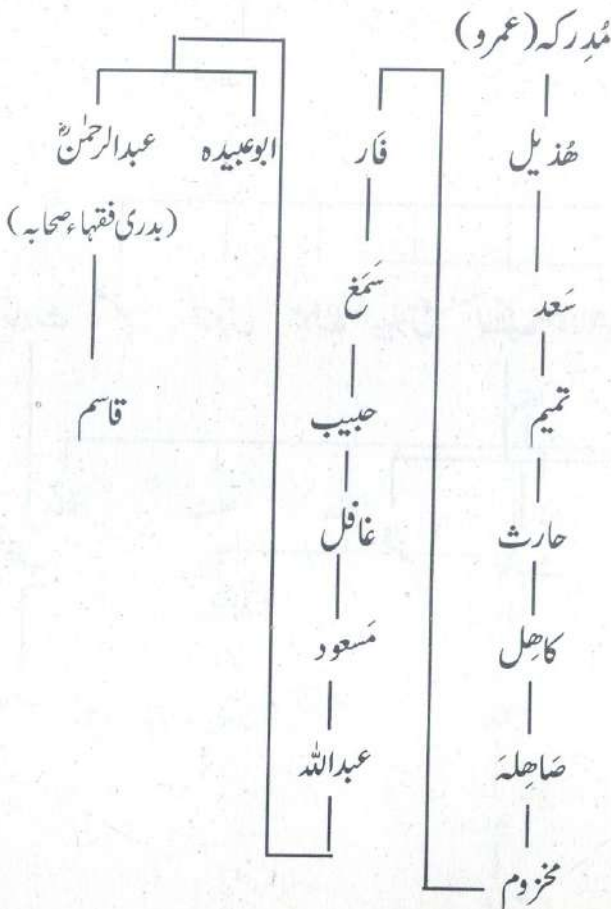 مُدرِکہ (عمرو)
ھُذیل
سَعد
تمیم
حارث
کاھِل
صَاھِلہَ
مخزوم
فَار
سَمَغ
حبیب
غافل
مَسعود
عبداللہ
ابوعبیدہ
عبدالرحمٰنؒ
(بدری فقہاء صحابہ)
قاسم